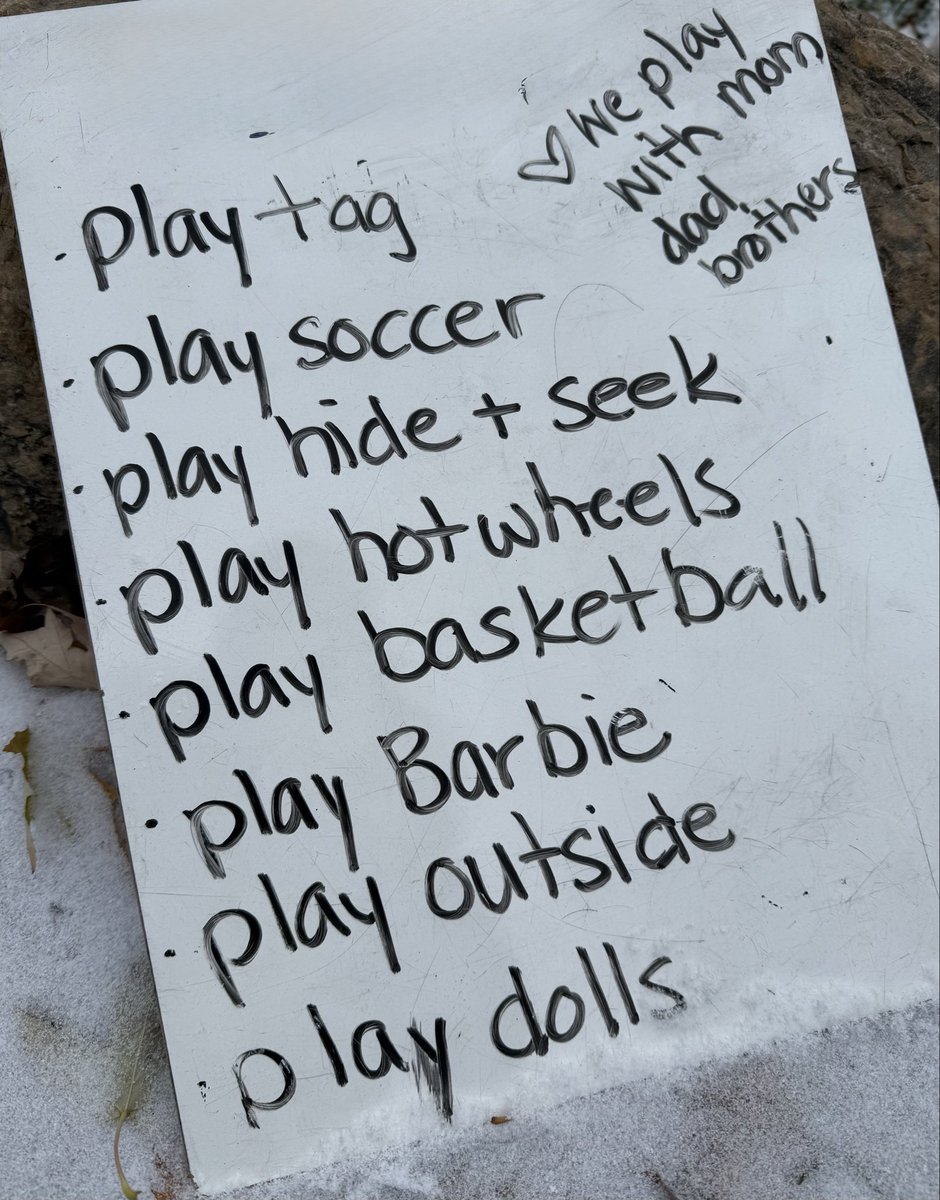 ♡ we play
with mom
dad,
brothers
· play tag
· play soccer
· play hide + seek
· play hotwheels
· play basketball
· play Barbie
· play outside
play dolls